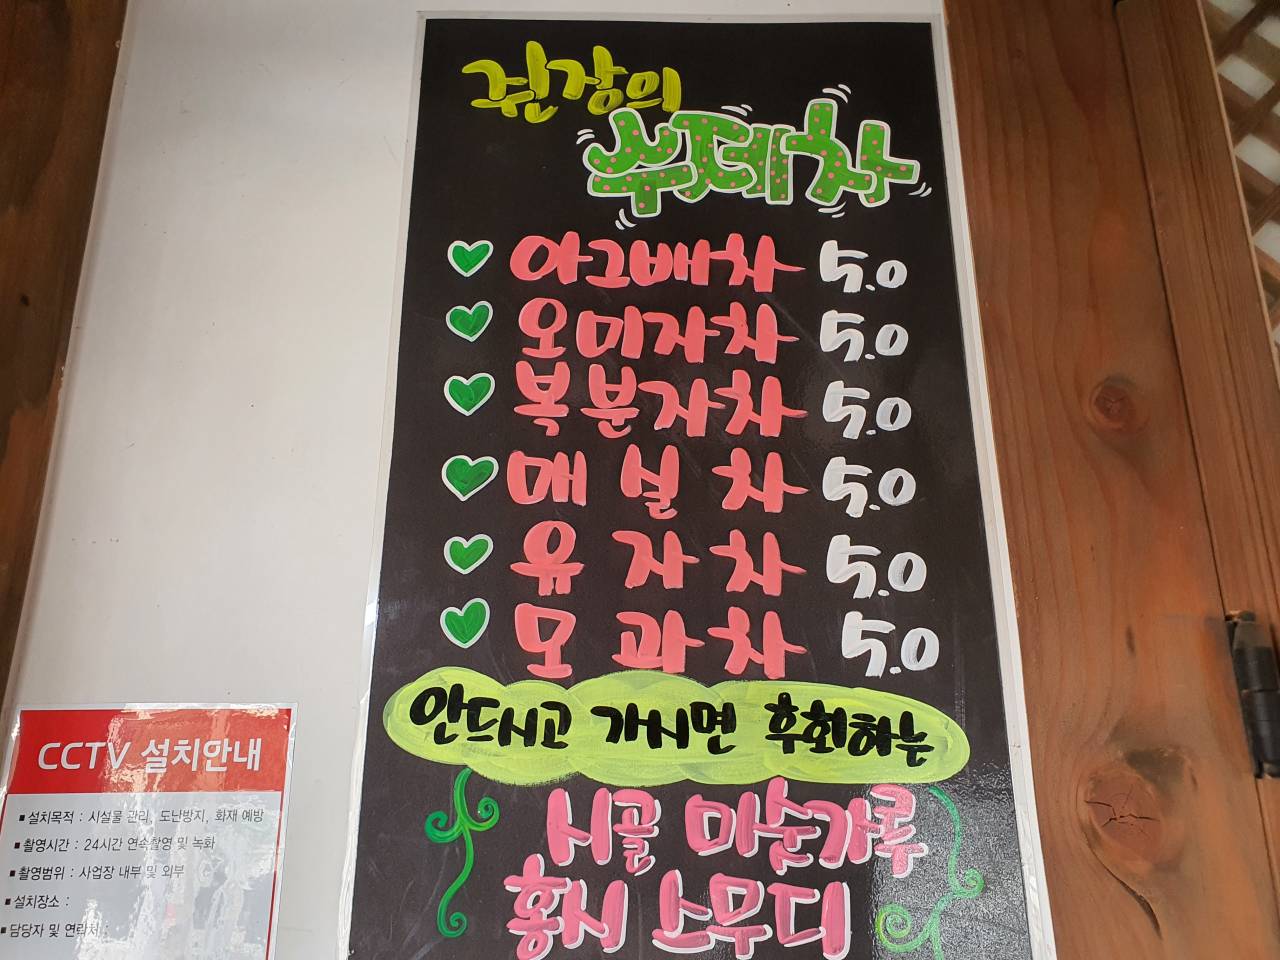 쥔장의
수제차
아그배차 5.0
오미자차 5.0
복분자차 5.0
매실차 5.0
유자차 5.0
모과차 5.0
안드시고 가시면 후회하는
시골 미숫가루
홍시 스무디
CCTV 설치안내
■ 설치목적 : 시설물 관리, 도난방지, 화재 예방
■ 촬영시간 : 24시간 연속촬영 및 녹화
■ 촬영범위 : 사업장 내부 및 외부
■ 설치장소 :
■ 담당자 및 연락처 :